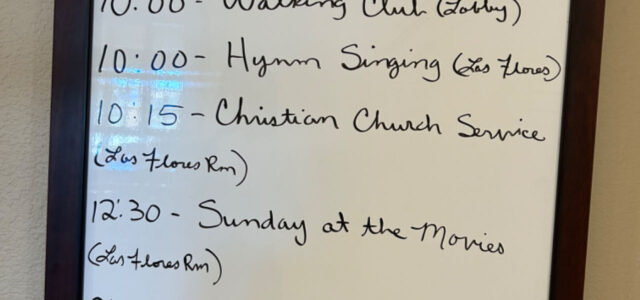 10:00 - Walking Club (Lobby)
10:00 - Hymn Singing (Las Flores)
10:15 - Christian Church Service
(Las Flores Rm)
12:30 - Sunday at the Movies
(Las Flores Rm)